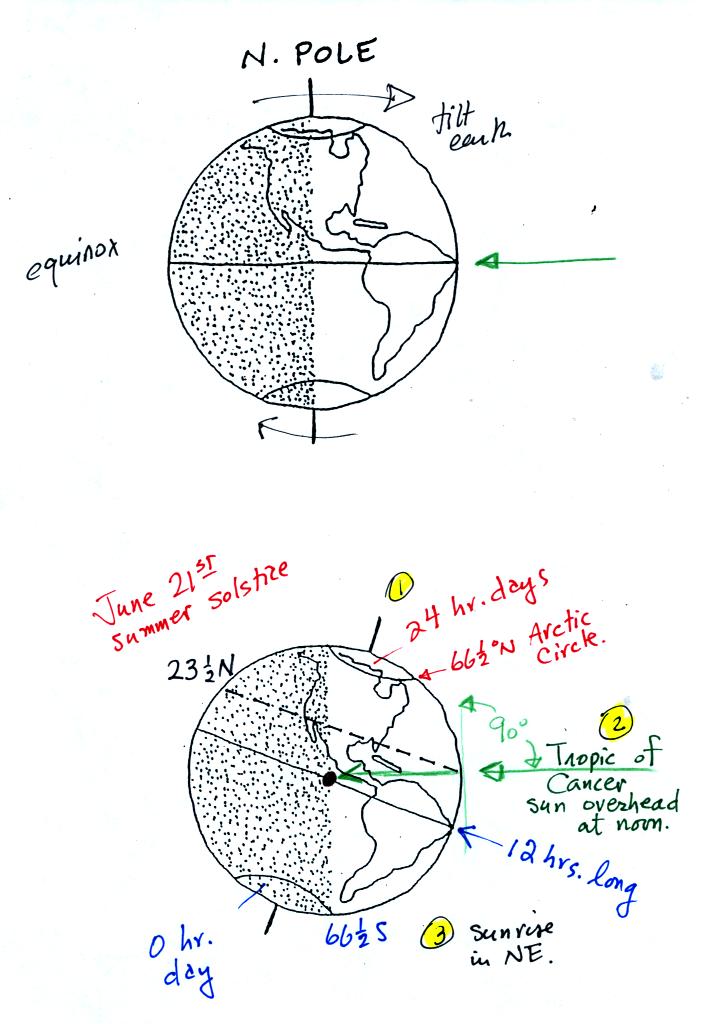 N. POLE
tilt
earth
equinox
June 21ST
summer solstice
1
24 hr. days
66½°N Arctic
Circle.
23½N
90°
2
Tropic of
Cancer
sun overhead
at noon.
12 hrs. long
0 hr.
day
66½S
3 sunrise
in NE.